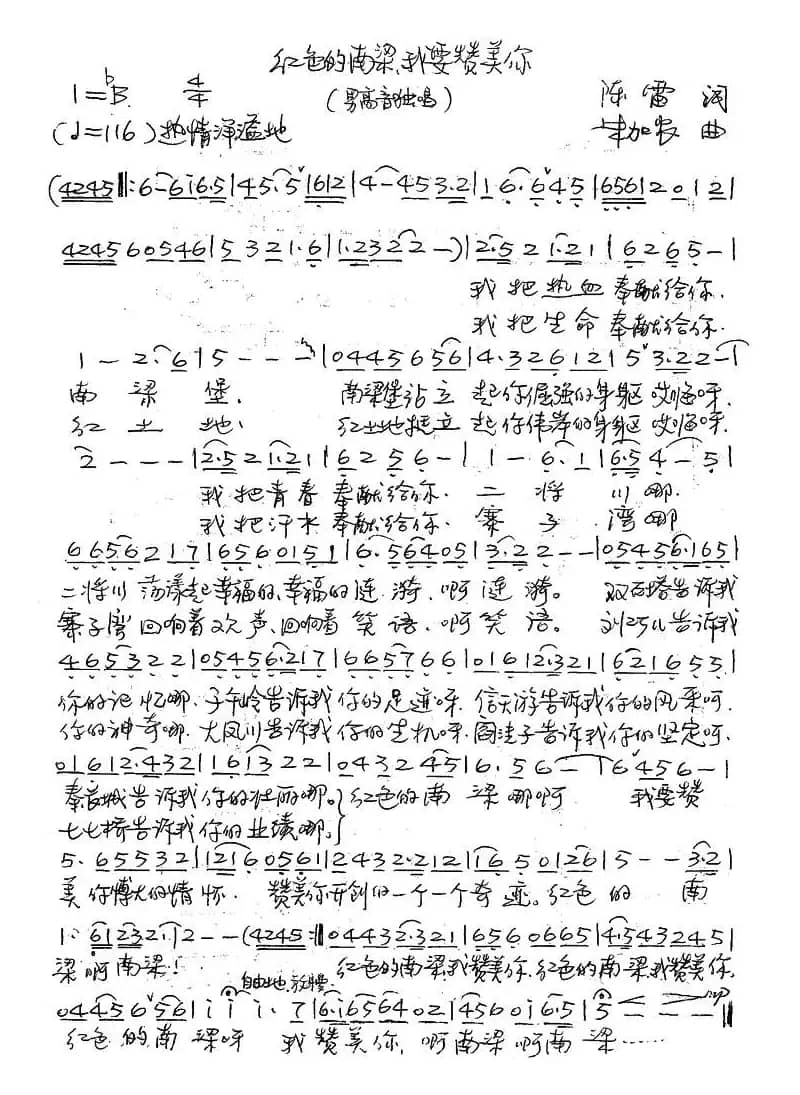 红色的南梁,我要赞美你
1=♭B 4/4 (男高音独唱) 陈雷 词
(♩=116)热情洋溢地 加农 曲
(4245‖:6-6i6.5|45.5ˇ1612|4-453.2|1.6.6ˇ45|6561201 2|
424560546|5 3 2 1.6|1.2322-)|2.5 2 1.21|6 2 6 5-|
我把热血奉献给你.
我把生命奉献给你.
1-2.6|5---|0445656|4.3261 2|5ˇ3.22-|
南梁堡. 南梁堡站立起你倔强的身躯哎嗨呀.
红土地. 红土地挺立起你伟岸的身躯哎嗨呀.
2---|2.5 2 1.21|6 2 5 6-|1-6.1|6.54-5|
我把青春奉献给你. 二将川哪.
我把汗水奉献给你. 寨子湾哪
6656217|6560151|6.56405|3.22--|05456.165|
二将川荡漾起幸福的,幸福的涟漪,啊涟漪。双石塔告诉我
寨子湾回响着欢声,回响着笑语,啊笑语。刘巧儿告诉我
465322|05456.217|665766|01612.321|621655|
你的记忆哪.子午岭告诉我你的足迹呀.信天游告诉我你的风采呵.
你的神奇哪.大凤川告诉我你的生机呀.阎洼子告诉我你的坚定呀.
01612.432|161322|043245|6.56-|6ˇ456-|
告诉我你的壮丽哪。}红色的南梁哪啊 我要赞
七七桥告诉我你的业绩哪。}
5.65532|12160561|2432.212|16501 26|5--3.2|
美你博大的情怀. 赞美你开创的一个一个奇迹。红色的南
1.61232.12--(4245:‖04432.321|6560665|4.5432451|
梁啊南梁! 红色的南梁,我赞美你,红色的南梁,我赞美你,
自由地.放慢
04456ˇ56|i i i.7|6.i656402|45600i6.5|5---‖
红色的南梁呀 我赞美你,啊南梁啊南梁……